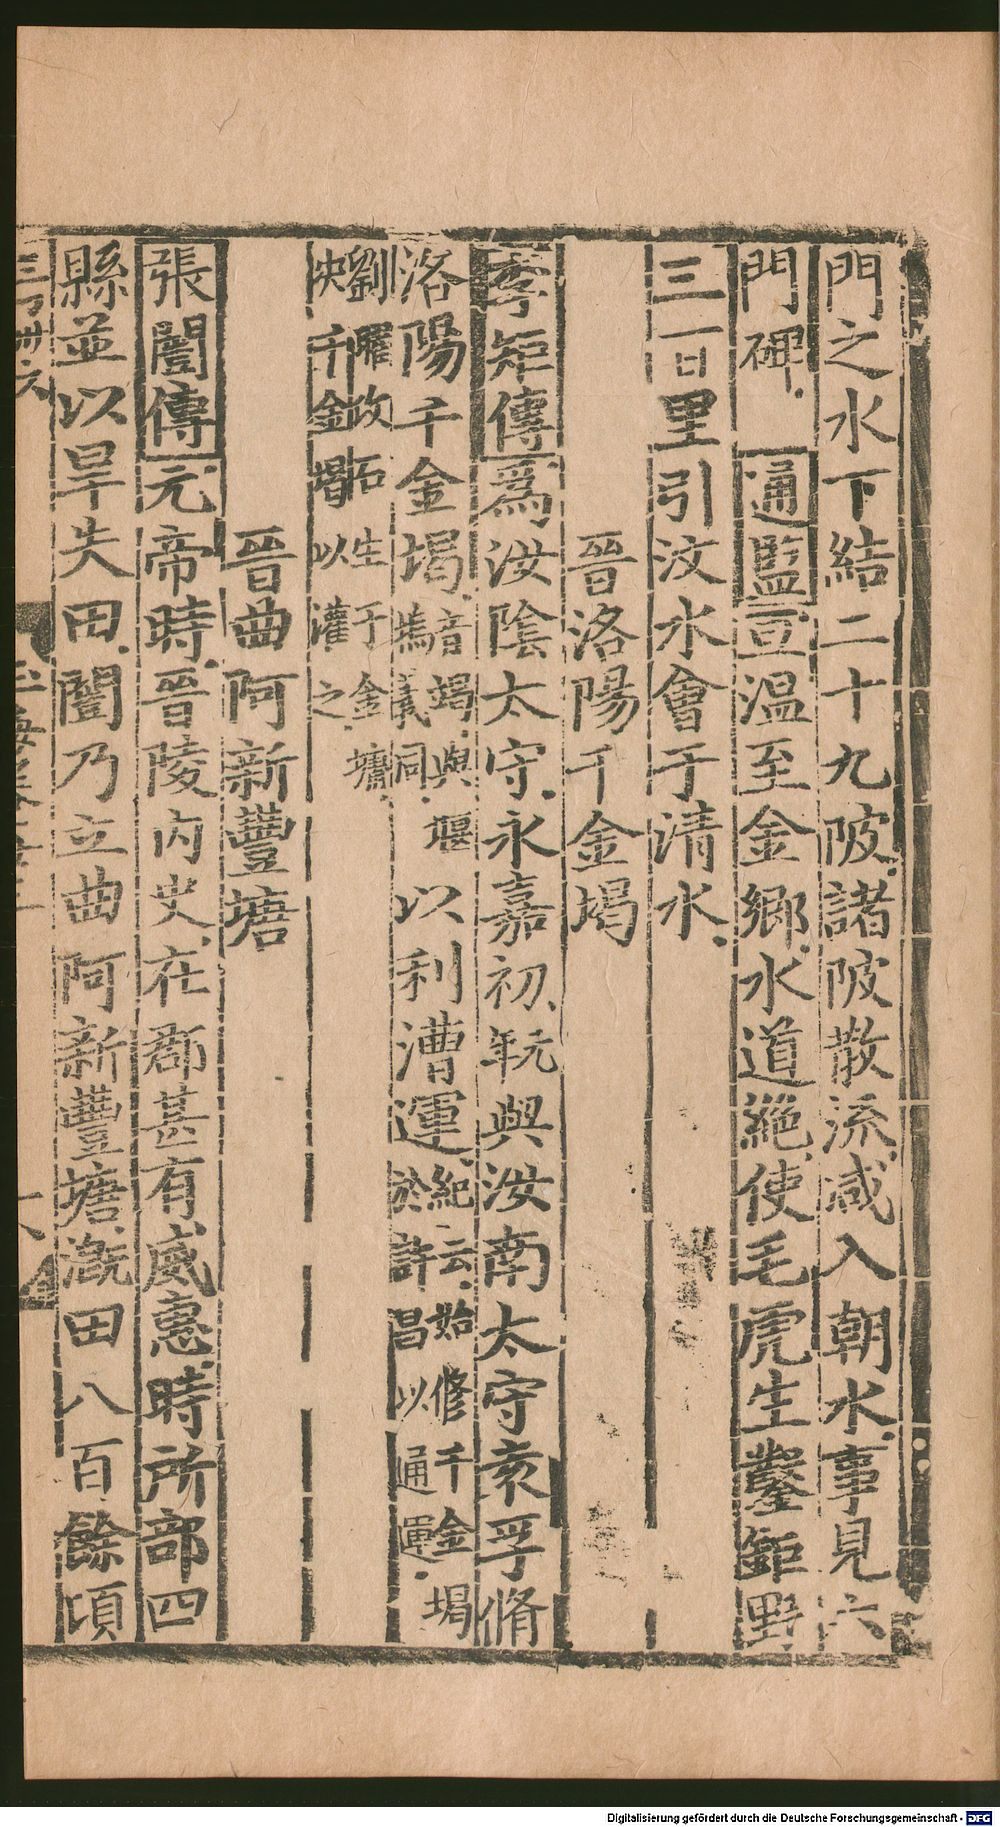 門之水下結二十九陂諸陂散流咸入朝水事見六
門碑通鑑亘温至金鄉水道絶使毛虎生鑿鉅野
三百里引汶水會于清水
晉洛陽千金堨
李矩傳爲汝陰太守永嘉初元年與汝南太守袁孚脩
洛陽千金堨音竭與堰
塢義同以利漕運紀云始修千金堨
於許昌以通運
劉曜攻石生于金墉
決千金堨以灌之
晉曲阿新豐塘
張闓傳元帝時晉陵內史在郡甚有威惠時所部四
縣並以旱失田闓乃立曲阿新豐塘漑田八百餘頃
Digitalisierung gefördert durch die Deutsche Forschungsgemeinschaft - DFG